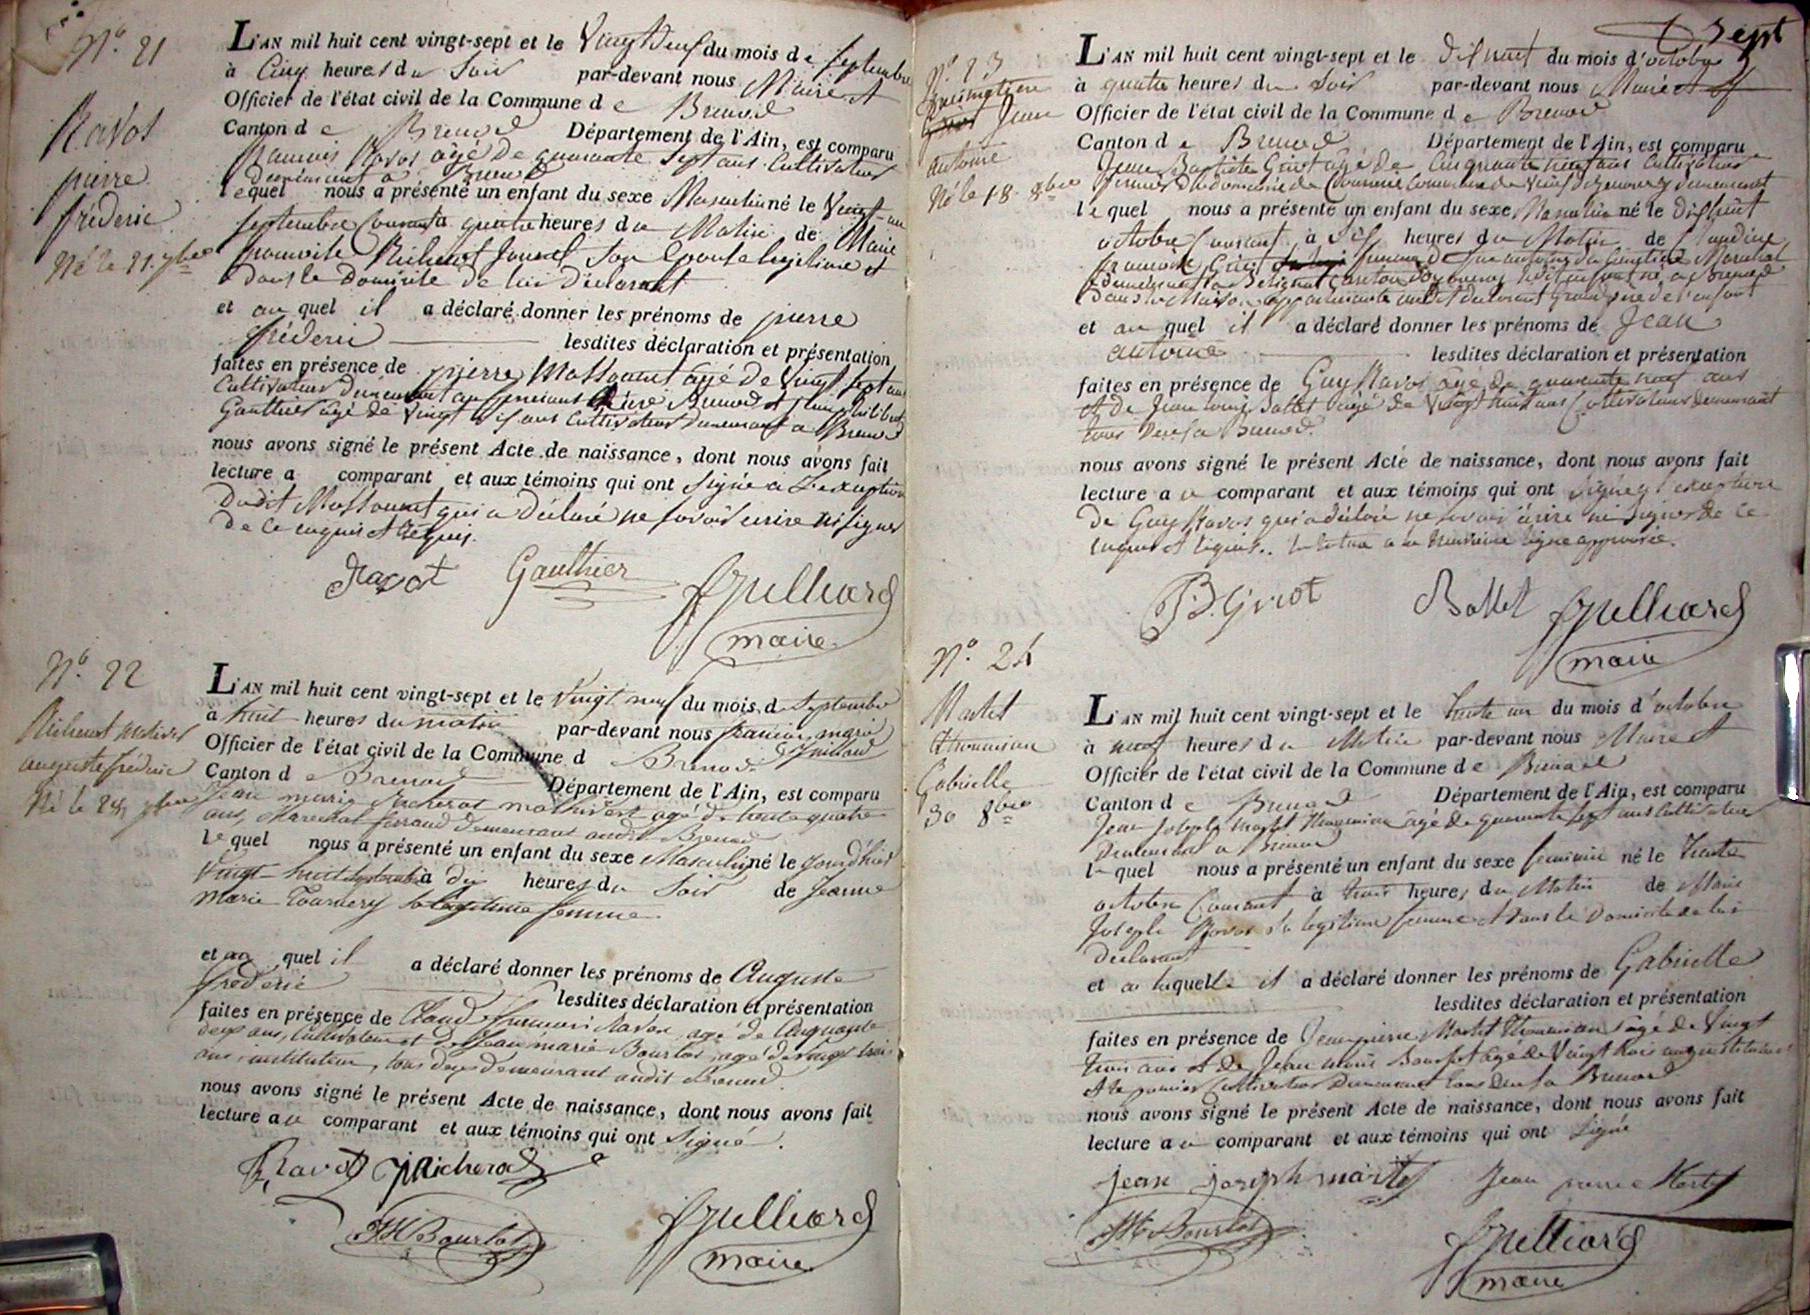 N.º 21
Ravot
pierre
fréderic
Né le 21. 7bre
L'AN mil huit cent vingt-sept et le Vingt deux du mois de Septembre
à Cinq heures du Soir par-devant nous Maire et
Officier de l'état civil de la Commune de Brenod
Canton de Brenod Département de l'Ain, est comparu
francois Ravot âgé de quarante Sept ans Cultivateur
demeurant à Brenod
lequel nous a présenté un enfant du sexe Masculin né le Vingt-un
Septembre Courant à quatre heures du Matin de Marie
françoise Richerot Son Epouse légitime et
dans le Domicile de lui déclarant
et au quel il a déclaré donner les prénoms de pierre
fréderic lesdites déclaration et présentation
faites en présence de pierre âgé de Vingt Sept ans
Cultivateur demeurant Brenod et
Gauthier âgé de Vingt Six ans Cultivateur demeurant à Brenod
nous avons signé le présent Acte de naissance, dont nous avons fait
lecture a comparant et aux témoins qui ont Signé a L'exception
dudit qui a Déclaré ne Savoir écrire ni Signer
de ce enquis et Requis
Ravot Gauthier Juilliard
maire
N.º 22
Richerot
auguste fréderic
Né le 28 7bre
L'AN mil huit cent vingt-sept et le Vingt neuf du mois de Septembre
à huit heures du matin par-devant nous francois marie
Juillard
Officier de l'état civil de la Commune d Brenod
Canton de Brenod Département de l'Ain, est comparu
Jean marie Richerot agé de trente quatre
ans, Marechal ferrand demeurant audit Brenod
lequel nous a présenté un enfant du sexe Masculin né le jour d'hier
Vingt huit Septembre à dix heures du Soir de Jeanne
Marie Tournery Sa légitime femme
et au quel il a déclaré donner les prénoms de Auguste
frédéric lesdites déclaration et présentation
faites en présence de Claude Ravot, agé de Cinquante
deux ans, Cultivateur et de Jean marie Bourlot, agé de vingt trois
ans, instituteur, tous deux demeurant audit Brenod.
nous avons signé le présent Acte de naissance, dont nous avons fait
lecture au comparant et aux témoins qui ont Signé.
Ravot Richerot
JM Bourlot Juilliard
maire
Sept
N.º 23
Jean
antoine
Né le 18. 8bre
L'AN mil huit cent vingt-sept et le Dix huit du mois d'octobre
à quatre heures du Soir par-devant nous Maire et
Officier de l'état civil de la Commune de Brenod
Canton de Brenod Département de l'Ain, est comparu
Jean Baptiste Girot âgé de Cinquante neuf ans Cultivateur
lequel nous a présenté un enfant du sexe Masculin né le Dix huit
octobre Courant à Six heures du Matin de Claudine
francoise Girot femme d
dans la Maison appartenante audit declarant Grand père de l'enfant
et au quel il a déclaré donner les prénoms de Jean
antoine lesdites déclaration et présentation
faites en présence de Guy Ravot âgé de quarante neuf ans
et de Jean Louis Ballet âgé de Vingt huit ans Cultivateurs demeurant
tous deux à Brenod.
nous avons signé le présent Acte de naissance, dont nous avons fait
lecture au comparant et aux témoins qui ont Signé à l'exception
de Guy Ravot qui a déclaré ne Savoir écrire ni Signer de ce
enquis et Requis.
JB Girot Ballet Juilliard
maire
N.º 24
Martet
Thomasson
Gabrielle
30 8bre
L'AN mil huit cent vingt-sept et le trente un du mois d'octobre
à neuf heures du Matin par-devant nous Maire et
Officier de l'état civil de la Commune de Brenod
Canton de Brenod Département de l'Ain, est comparu
Jean Joseph Martet âgé de quarante Sept ans Cultivateur
Demeurant à Brenod
lequel nous a présenté un enfant du sexe feminin né le trente
octobre Courant à trois heures du Matin de Marie
Joseph Ravot Sa legitime femme et dans le Domicile de lui
Déclarant
et a laquelle il a déclaré donner les prénoms de Gabrielle
lesdites déclaration et présentation
faites en présence de Jean pierre Martet âgé de Vingt
trois ans et de Jean Marie Bourlot âgé de Vingt trois ans instituteur
et le premier Cultivateur Demeurant tous deux à Brenod
nous avons signé le présent Acte de naissance, dont nous avons fait
lecture au comparant et aux témoins qui ont Signé
jean joseph martet Jean pierre Martet
JM Bourlot Juilliard
maire